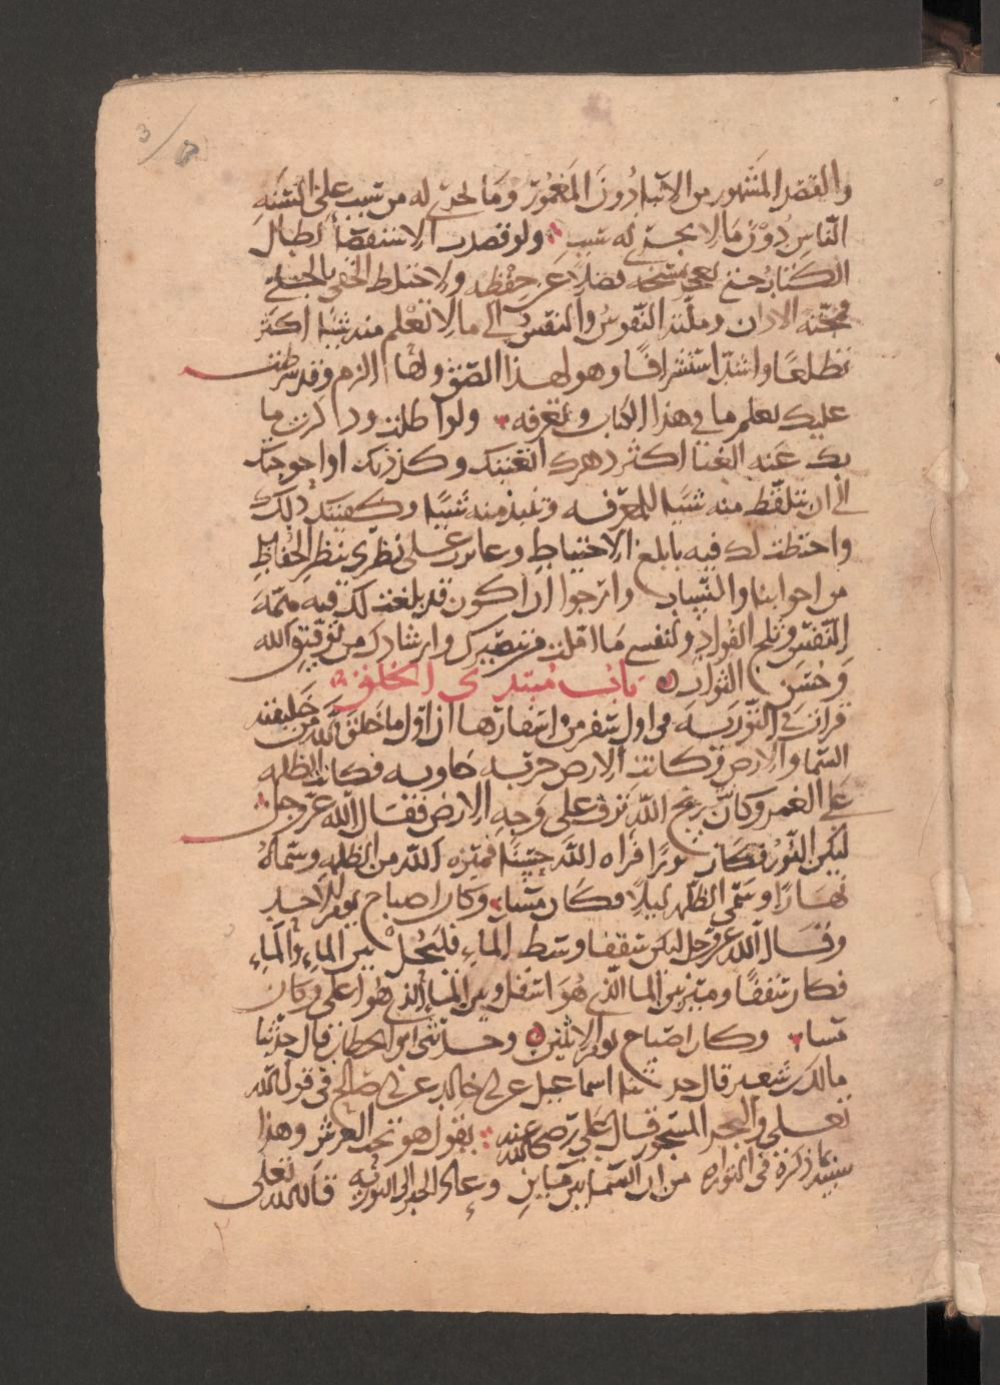 3/
والقصد المشهور من الانبا دون المغمور وما يجري له من سبب على السنه
الناس دون ما لا يجري له سبب ولو قصدت الاستقصا لطال
الكتاب حتى يعجز نسخه فضلا عن حفظه ولاختلط الخفي بالجلي
فمجته الاذان وملته النفوس والنفس الى ما لا تعلم منه شيا اكثر
تطلعا واشد استشرافا وهو لهذا الصنف ولها الزم وقد شرطت
عليك تعلم ما في هذا الكتاب وتعرفه ولو اطلت وذاكرت ما
بك عنه الغنا اكثر دهرك اتعبتك وكددتك واحوجتك
الى ان تتلقط منه شيا للمعرفه وتنبذ منه شيا وكفيتك ذلك
واحتطت لك فيه بابلغ الاحتياط وعايرت على نظري بنظر الحفاظ
من اخواننا والنساب وارجوا ان اكون قد بلغت لك فيه همة
النفس وثلج الفواد ولنفسي ما املت في تبصيرك وارشادك من توفيق الله
وحسن الثواب باب مبتدى الخلق
قرات في التورية في اول سفر من اسفارها ان اول ما خلق الله من خليقته
السما والارض وكانت الارض خربة خاويه فكانت الظلمه
على الغمر وكان ريح الله ترف على وجه الارض فقال الله عز وجل
ليكن النور فكان نورا فراه الله حسنا فميزه الله من الظلمه وسماه
نهارا وسمى الظلمه ليلا فكان مسا وكان اصباح يوم الاحد
وقال الله عز وجل ليكن سقفا وسط الماء فليحل بين الماء والماء
فكان سقفا وميز بين الما الذي هو اسفل وبين الماء الذي هو اعلى وكان
مسا وكان اصباح يوم الاثنين وحدثني ابو الخطاب قال حدثنا
مالك بن سعير قال حدثنا اسماعيل عن ابي خالد عن ابي صالح في قول الله
تعلى والبحر المسجور قال علي رضي الله عنه يقول هو تحت العرش وهذا
شبيه بما ذكره في التوراه من ان السما بين ماين وعاد الخبر الى التورية قال الله تعلى